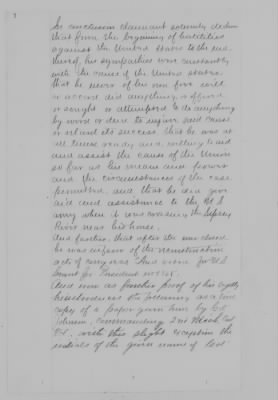 In conclusion claimant solemnly declares
that from the beginning of hostilities
against the United States to the end
thereof, his sympathies were constantly
with the cause of the United States
that he never of his own free will
or accord did anything or offered
or sought or attempted to do anything
by word or deed to injure said cause
or retard its success that he was at
all times ready and willing to aid
and assist the cause of the Union
so far as his means and power
and the circumstances of the case
permitted and that he did give
aid and assistance to the U.S.
army when it was crossing the
River near his home.
And further, that after the war closed
he was in favor of the reconstruction
acts of congress And voted for U.S.
Grant for President in 1868.
And now as further proof of his loyalty
the following as a true
copy of a paper given him by
Johnson, commanding 2nd
with this slight exception the
initials of the given name of Col